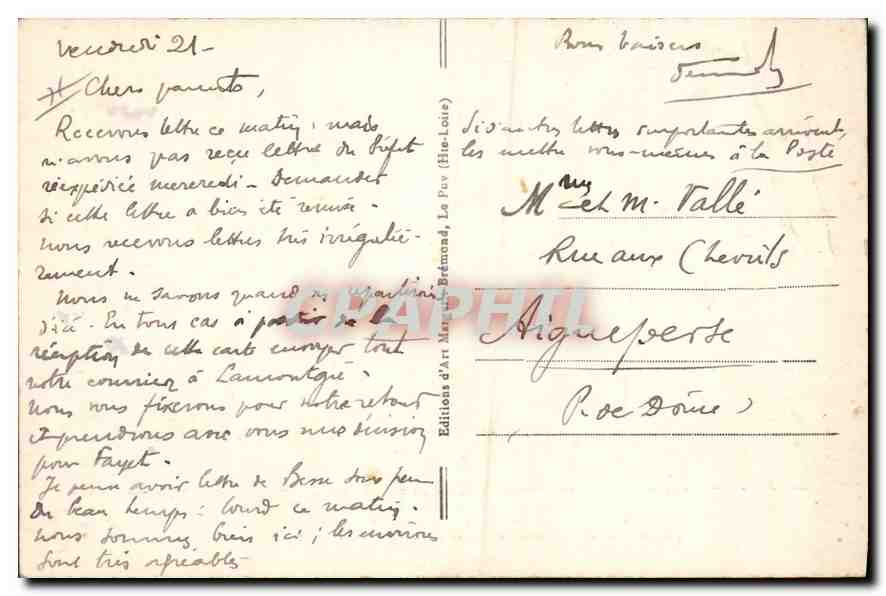 Vendredi 21-
Chers parents,
Recevons lettre ce matin ; mais
n'avons pas reçu lettre du Préfet
réexpédiée mercredi - Demander
si cette lettre a bien été remise.
Nous recevons lettres très irréguliè-
rement.
Nous ne savons quand repartirons
d'ici. En tous cas à partir de la
réception de cette carte envoyer tout
notre courrier à Lamontgie.
Nous vous fixerons pour notre retour
et prendrons avec vous une décision
pour Fayet.
Je pense avoir lettre de Besse sous peu
Du beau temps : lourd ce matin.
Nous sommes bien ici ; les environs
sont très agréables
Editions d'Art Margerit-Brémond, Le Puy (Hte-Loire)
Bons baisers
Si d'autres lettres importantes arrivent,
les mettre vous-mêmes à la Poste
Mme et M. Vallé
Rue aux Chevrils
Aigueperse
P. de Dôme
CPAPHIL